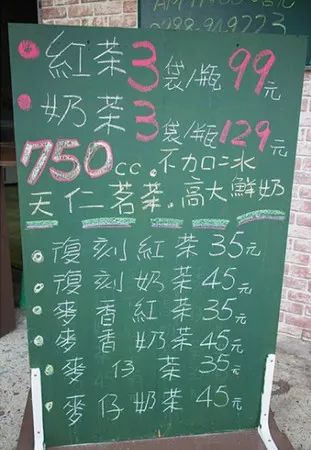 紅茶3袋/瓶99元
奶茶3袋/瓶129元
750cc.不加冰
天仁茗茶.高大鮮奶
復刻紅茶35元
復刻奶茶45元
麥香紅茶35元
麥香奶茶45元
麥仔茶35元
麥仔奶茶45元